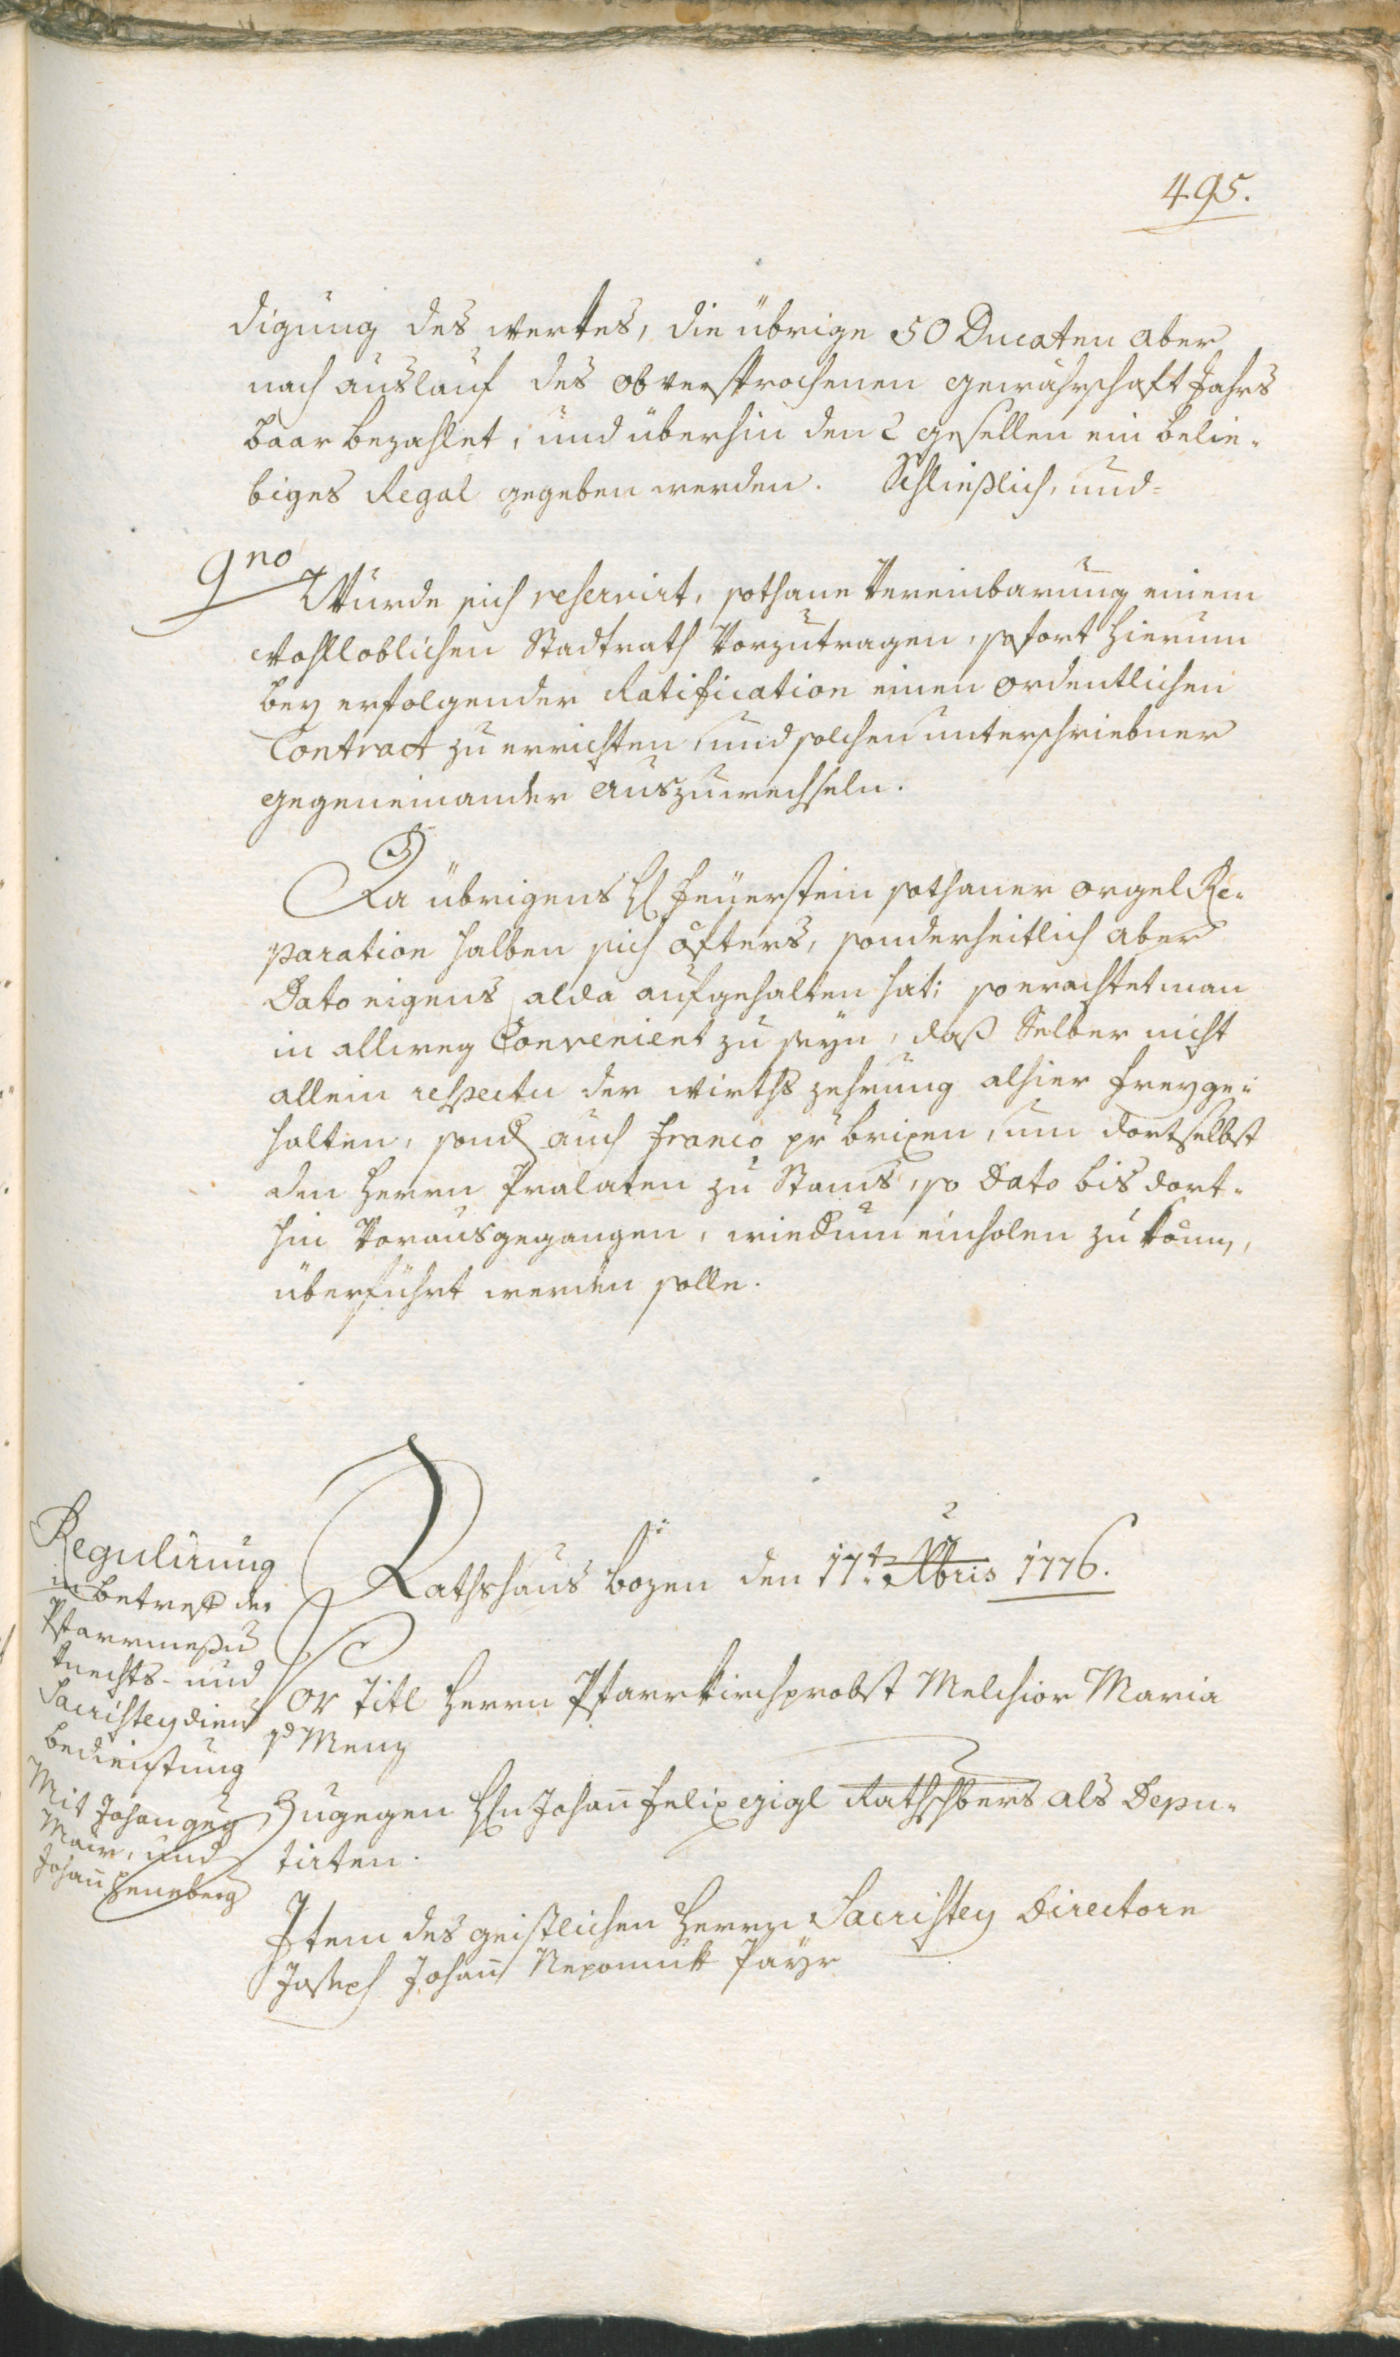 495.
digung des werkes, die übrige 50 Ducaten aber
nach auslauf des obversprochenen gewährschaft Jahrs
baar bezahlet, und überhin den 2 gesellen ein belie-
biges Regal gegeben werden. Schließlich, und=
9no
Wurde sich reservirt, sothane Vereinbarung einem
wohlloblichen Stadtrath Vorzutragen, sofort hierum
bey erfolgender Ratification einen ordentlichen
Contract zu errichten, und solchen unterschriebner
gegeneinander auszuwechseln.
Da übrigens H Feüerstein sothaner orgel Re-
paration halben sich öfters, sonderheitlich aber
Dato eigens alda aufgehalten hat; so erachtet man
in allweg Convenient zu seyn, daß Selber nicht
allein respectu der wirths zehrung alhier freyge-
halten, sond auch franco pr brixen, um dortselbst
den Herrn Pralaten zu Stams, so Dato bis dort-
hin Vorausgegangen, wiedum einholen zu könn,
überführt werden solle.
Regulirung
in betreff der
Pfarrmeßn
knechts- und
Sacristeydien
bedienstung
Mit Johan geg
Mair, und
Johann heneberg
Rathshaus bozen den 17t Xbris 1776.
Vor Titl Herrn Pfarrkirchprobst Melchior Maria
v Menz
Zugegen Hln Johann felix gigl Rathsfbers als Depu-
tirten.
Item des geistlichen Herrn Sacristey Directorn
Joseph Johann Nepomuk Payr